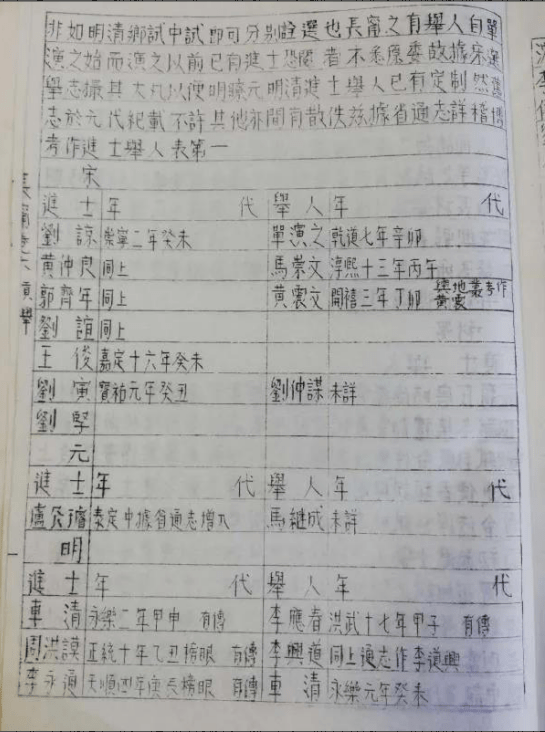 非如明清鄉試中試即可分別詮選也長甯之有舉人自單
演之始而演之以前已有進士恐閱者不悉原委故據宋選
舉志撮其大凡以便明瞭元明清進士舉人已有定制然舊
志於元代紀載不許其他亦間有散佚茲據省通志詳稽博
考作進士舉人表第一
宋
進士年代 舉人年代
劉諒 崇寧二年癸未 單演之 乾道七年辛卯
黃仲良 同上 馬崇文 淳熙十三年丙午
郭齊年 同上 黃震文 開禧三年丁卯 輿地叢考作黃震
劉誼 同上
王俊 嘉定十六年癸未
劉寅 寶祐元年癸丑 劉仲謀 未詳
劉堅
元
進士年代 舉人年代
盧 泰定中據省通志增入 馬繼成 未詳
明
進士年代 舉人年代
車清 永樂二年甲申 有傳 李應春 洪武十七年甲子 有傳
周洪謨 正統十年乙丑榜眼 有傳 李興道 同上通志作李道興
李永通 天順四年庚辰榜眼 有傳 車清 永樂元年癸未